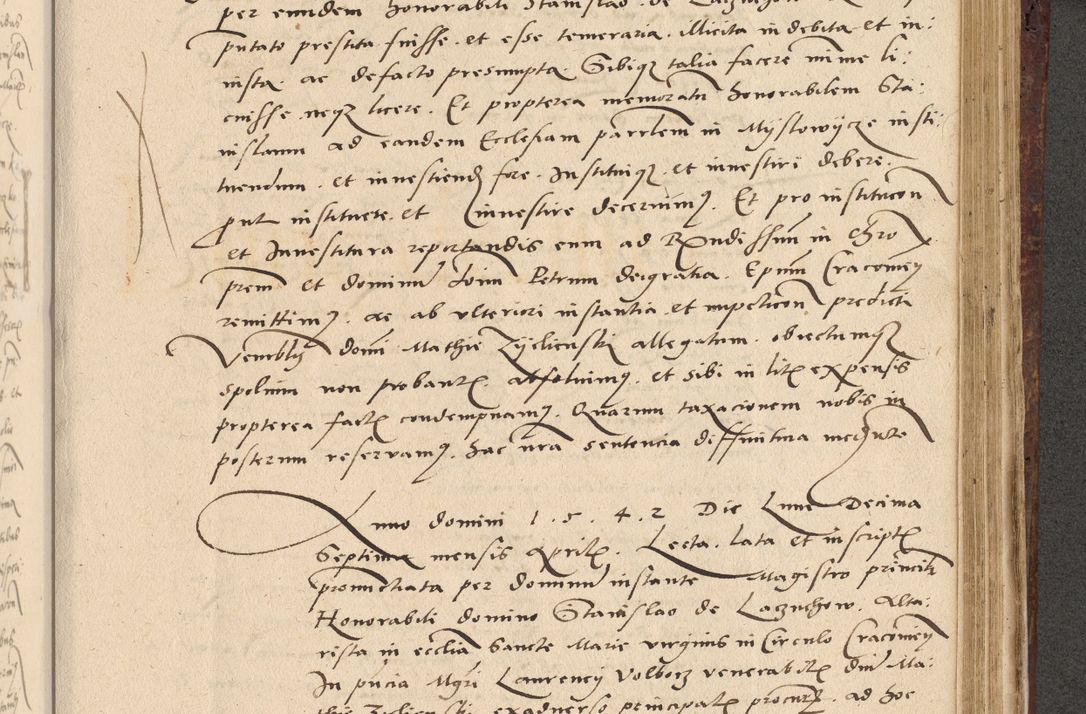 per eundem honorabili Stanislao de Laznchow
putato prestita fuisse. et esse temeraria. illicita indebita et in:
iusta. ac defacto presumpta. Sibiqz talia facere mime li:
cuisse neqz licere. Et propterea memoratu honorabilem Sta:
nislaum ad eandem Ecclesiam parrlem in Myslowycze insti:
tuendum. et inuestiend fore. Instituiqz. et inuestiri debere.
put instituere et inuestire decernimus. Et pro institucon
et Inuestitura reportandis eum ad Rndissum in Chro
prem et dominu doim Petrum deigratia. Epum Cracouien
remittimus. ac ab vlteriori instantia et impeticon predicti
Venerblis domi Mathie Zyelienski allegatum. obiectumqz
spolium non probantis absoluimus. et sibi in litis expensis
propterea factis condempnamus. Quarum taxacionem nobis in
posterum reseruamus. hac nra sentencia diffinitiua mediante
Anno domini 1.5.4.2 Die Lune Decima
Septima mensis Aprilis. Lecta. lata et in scriptis
pronunctiata per dominum instante Magistro principali
Honorabili domino Stanislao de Laznchow. Alta:
rista in ecclia Sancte Marie virginis in Circulo Cracouien
In pncia Mgri Laurency Volborz venerabilis dni Ma:
thie Zyelienski exaduerso principalis procuris. ad hoc